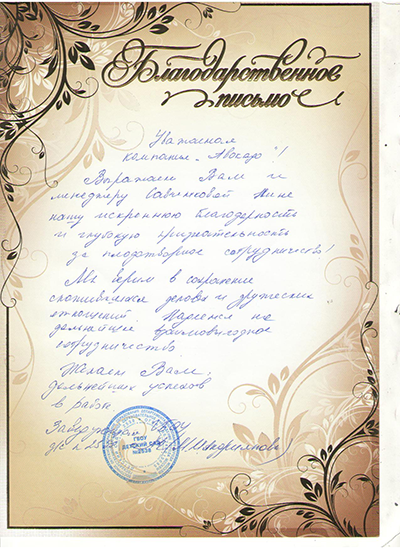 Благодарственное
письмо
Уважаемая
компания "Авокадо"!
Выражаем Вам и
менеджеру Савинковой Нине
нашу искреннюю благодарность
и глубокую признательность
за плодотворное сотрудничество!
Мы верим в сохранение
сложившихся деловых и дружеских
отношений. Надеемся на
дальнейшее взаимовыгодное
сотрудничество.
Желаем Вам,
дальнейших успехов
в работе
Заведующая
д/с
ГБОУ
ДЕТСКИЙ САД